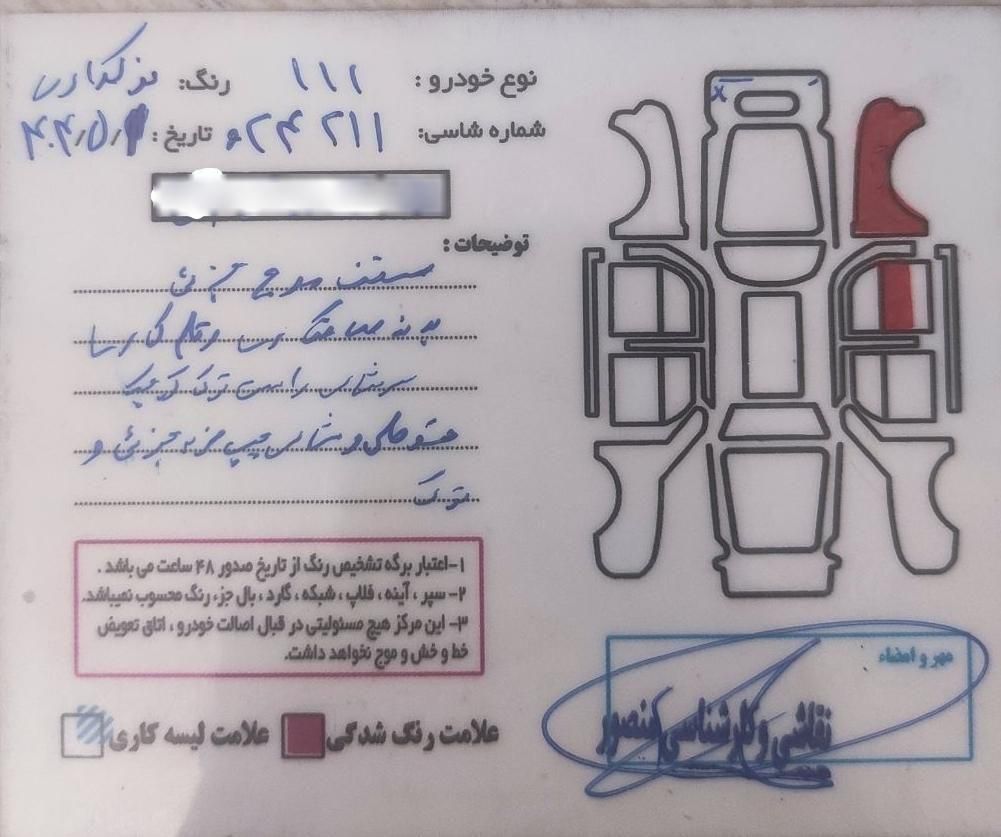 نوع خودرو : ۱۱۱ رنگ: نوک مدادی
شماره شاسی: ۲۱۱ ۰۲۴ تاریخ:
توضیحات :
سقف موج جزئی
رنگ
سرشاسی راست ترک کوچک
سینی جلو و شاسی چپ ضربه جزئی و
ترک
۱-اعتبار برگه تشخیص رنگ از تاریخ صدور ۴۸ ساعت می باشد .
۲- سپر ، آینه ، فلاپ ، شبکه ، گارد ، بال جزء رنگ محسوب نمیباشد.
۳- این مرکز هیچ مسئولیتی در قبال اصالت خودرو ، اتاق تعویض
خط و خش و موج نخواهد داشت.
علامت رنگ شدگی علامت لیسه کاری
مهر و امضاء
نقاشی و کارشناسی منصور